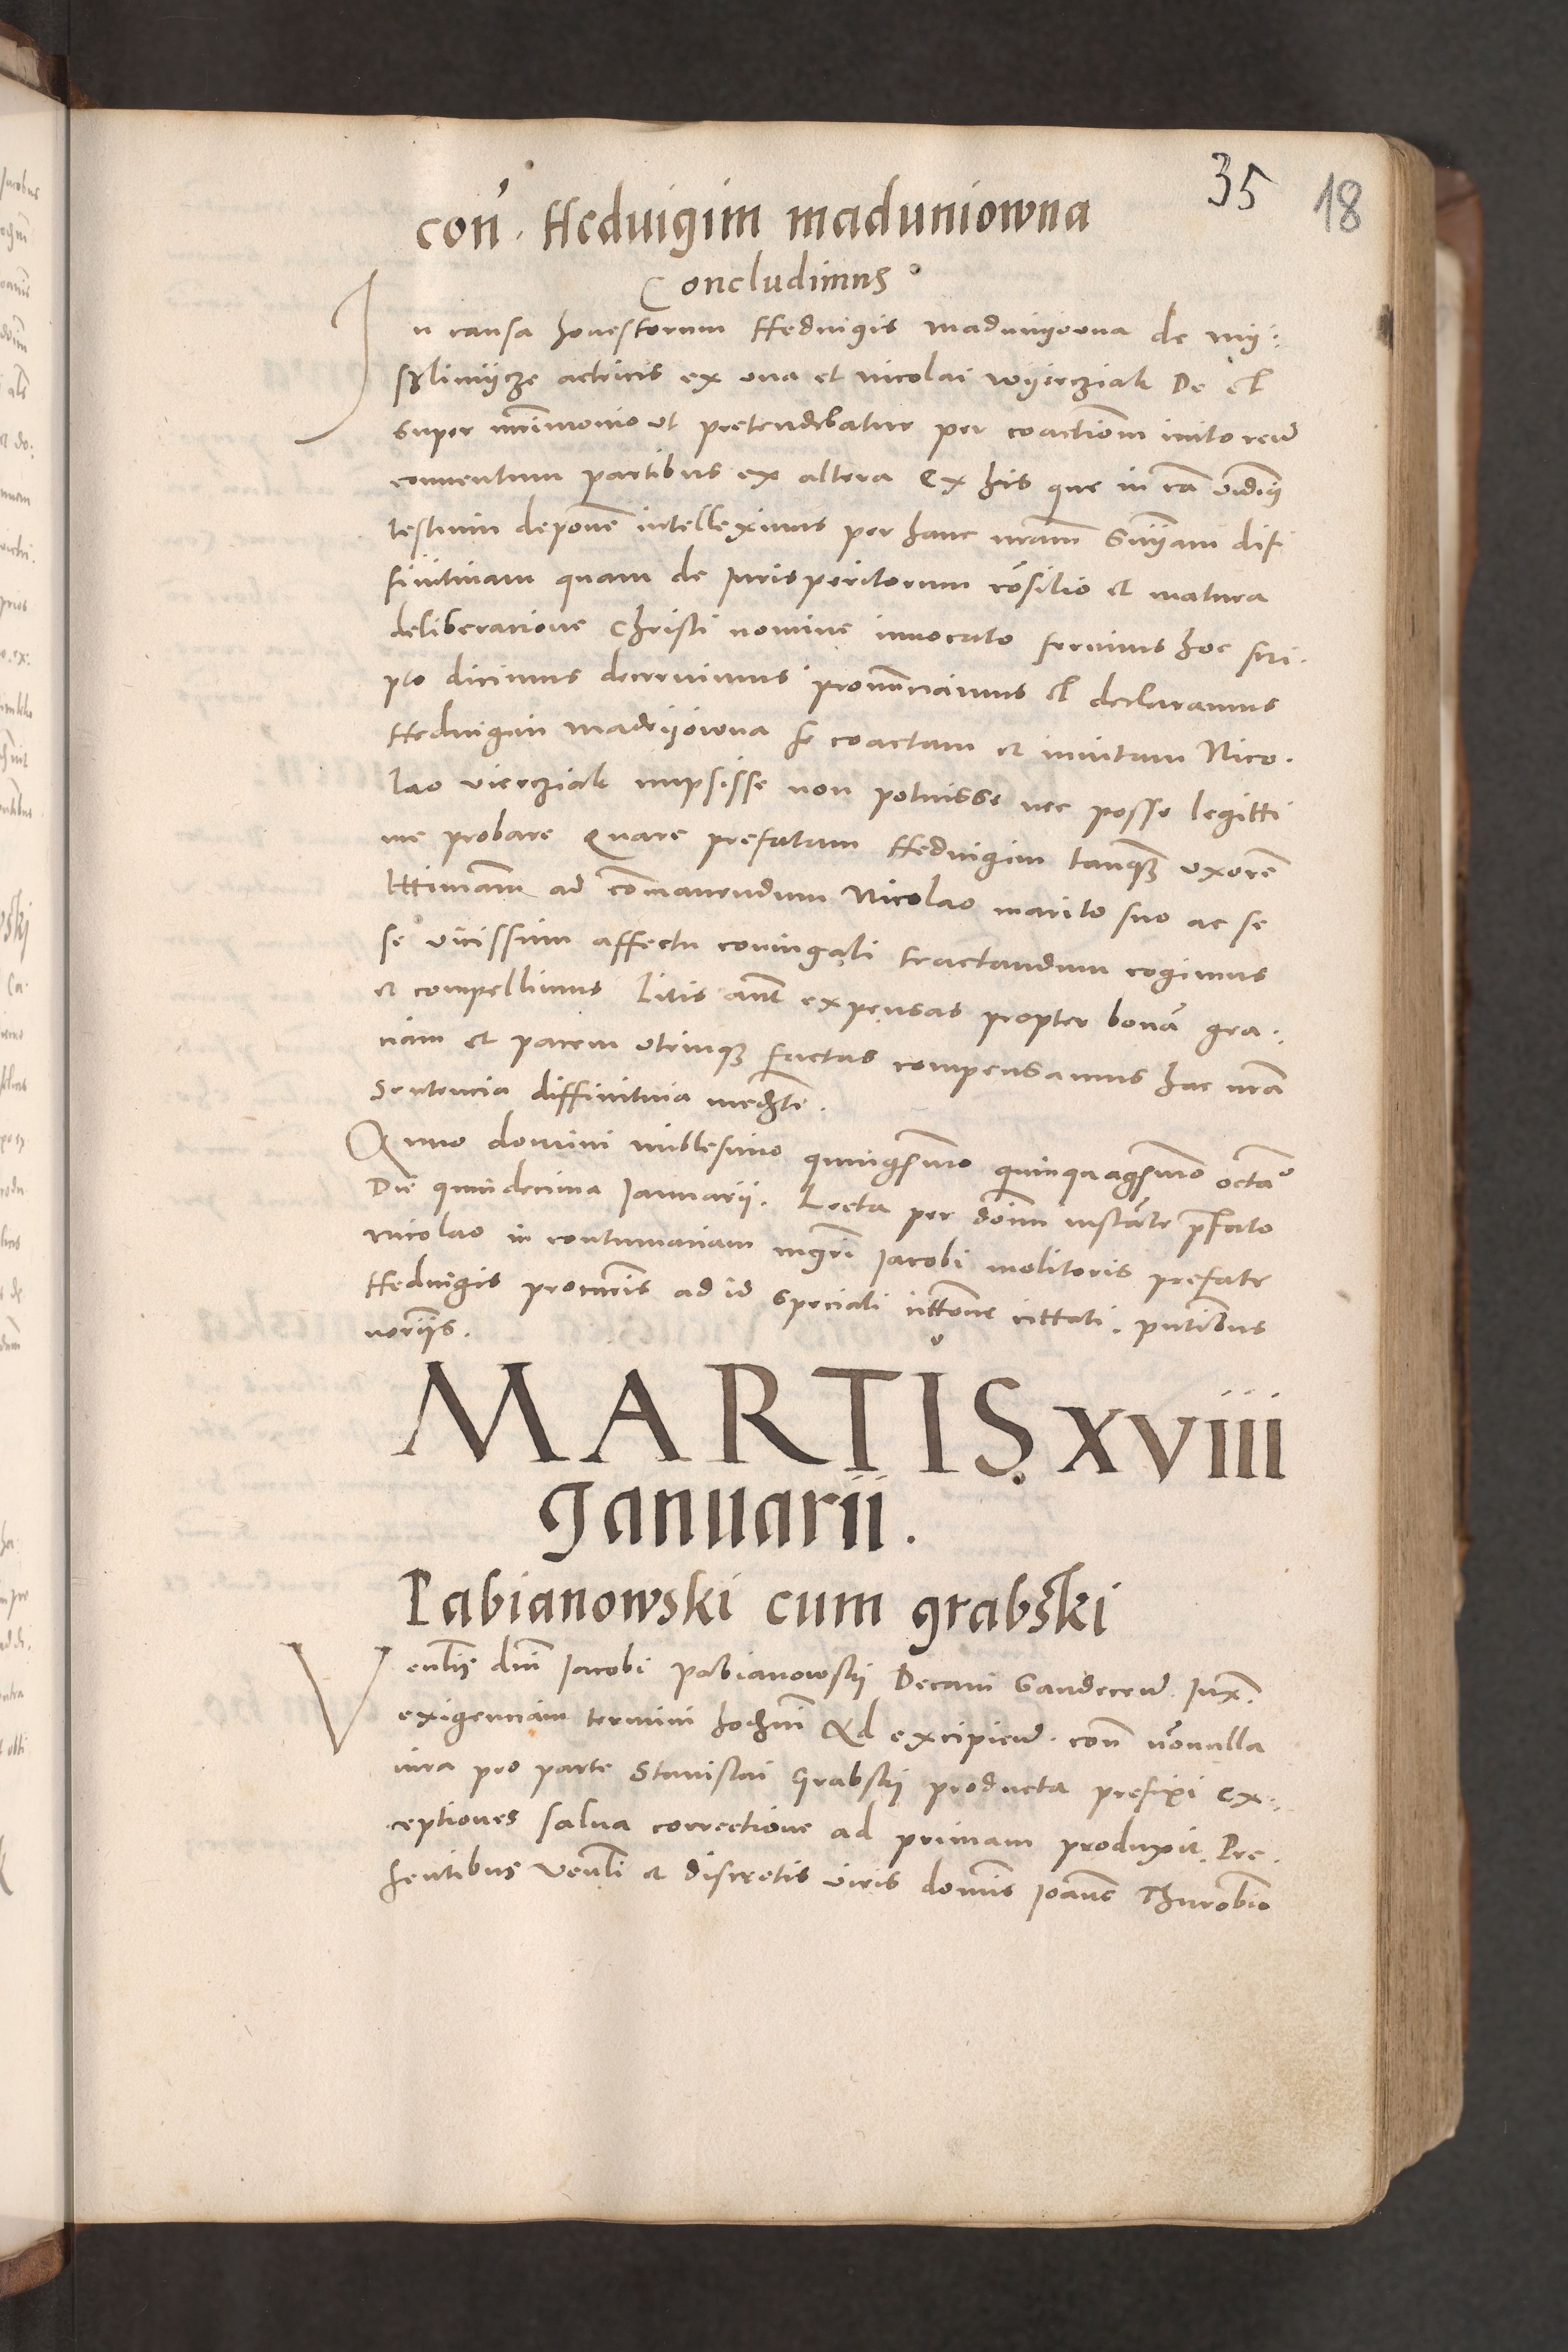 35 18
con̄. Hedvigim maduniowna
Concludimus
In causa honestorum Hedvigis maduniyowna de myi:
sslimiycze actricis ex una et nicolai wyierziak De et
super mr̄imonio ut pretendebatur per coactiom inito reum
conventum partibus ex altera Ex his que in cā vidimꝰ
testium deponē intelleximus per hanc nr̄am Sniyam dif
finitivam quam de Jurisperitorum cōsilio et matura
deliberacione Christi nomine invocato ferimus hoc scri.
pto dicimus decernimus pronunciamus et declaramus
Hedvigim madvyiowna se coactam et invitam Nico.
lao vierziak nupsisse non potuisse nec posse legitti
me probare Quare prefatam Hedvigim tanqꝫ uxorē
lttimam ad cōmanendum Nicolao marito suo ac se
se vicissim affectu coniugali tractandum cogimus
et compellimus Litis aut̄ expensas propter bonā gra.
ciam et pacem utrinqꝫ factas compensamus hac nr̄a
Sentencia diffinitiva mediāte.
Anno domini millesimo quingēsimo quinquagesimo octāo
Die quindecima Januarii. Lecta per dōinum instāte prfato
nicolao in contumaciam mgr̄i Jacobi molitoris prefate
Hedvigis procūris ad id speciali cittōne cittati. pntibus
noriis.
MARTIS xviii
Januarii.
Pabianowski cum grabski
Venlīs dn̄i Jacobi Pabianowskij Decani Gandeceñ. Juxᵃ.
exigenciam termini hodierni Ad excipienđ. con̄ nōnulla
iura pro parte Stanislai Grabskij producta prefixi ex:
ceptiones salva correctione ad primam produxit. Pre.
sentibus venlī et discretis viris domīs Joanne Thurobino